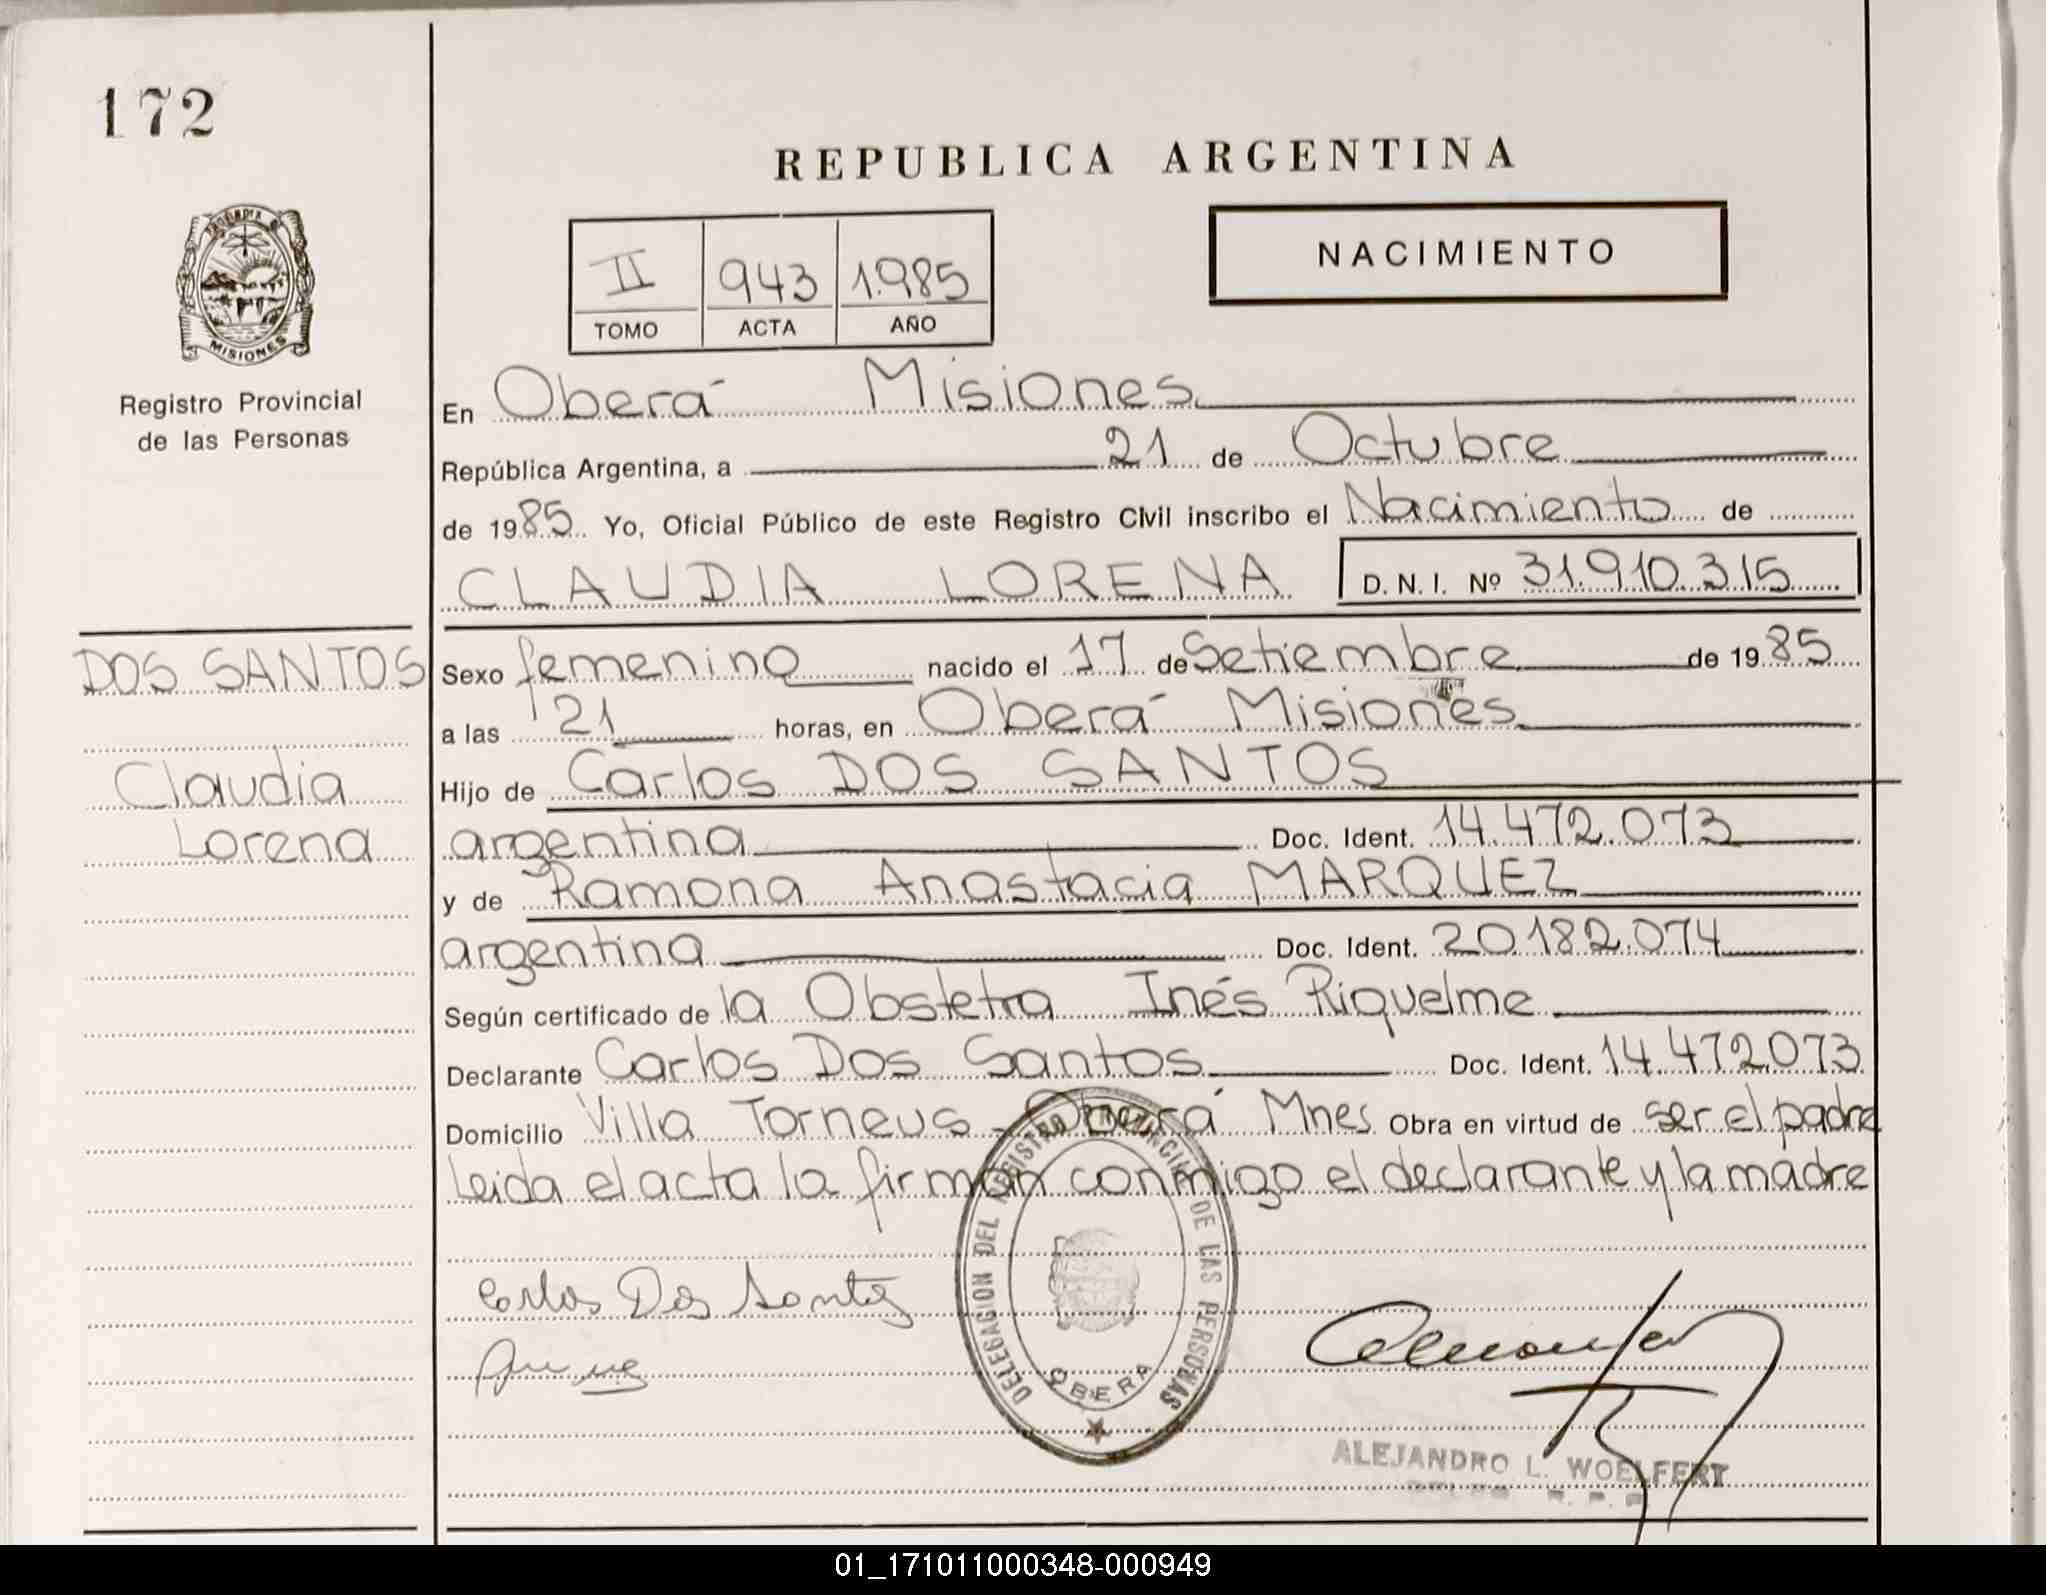 172
REPUBLICA ARGENTINA
PROVINCIA DE
MISIONES
Registro Provincial
de las Personas
II 943 1.985
TOMO ACTA AÑO
NACIMIENTO
En Oberá Misiones
República Argentina, a 21 de Octubre
de 1985 Yo, Oficial Público de este Registro Civil inscribo el Nacimiento de
CLAUDIA LORENA D. N. I. Nº 31.910.315
DOS SANTOS
Claudia
Lorena
Sexo femenino nacido el 17 de Setiembre de 1985
a las 21 horas, en Oberá Misiones
Hijo de Carlos DOS SANTOS
argentina Doc. Ident. 14.472.073
y de Ramona Anastacia MARQUEZ
argentina Doc. Ident. 20.182.074
Según certificado de la Obstetra Inés Riquelme
Declarante Carlos Dos Santos Doc. Ident. 14.472.073
Domicilio Villa Torneus - Oberá Mnes Obra en virtud de ser el padre
Leida el acta la firman conmigo el declarante y la madre
Carlos Dos Santos
DELEGACION DEL REGISTRO PROVINCIAL DE LAS PERSONAS
OBERA
ALEJANDRO L. WOELFERT
01_171011000348-000949